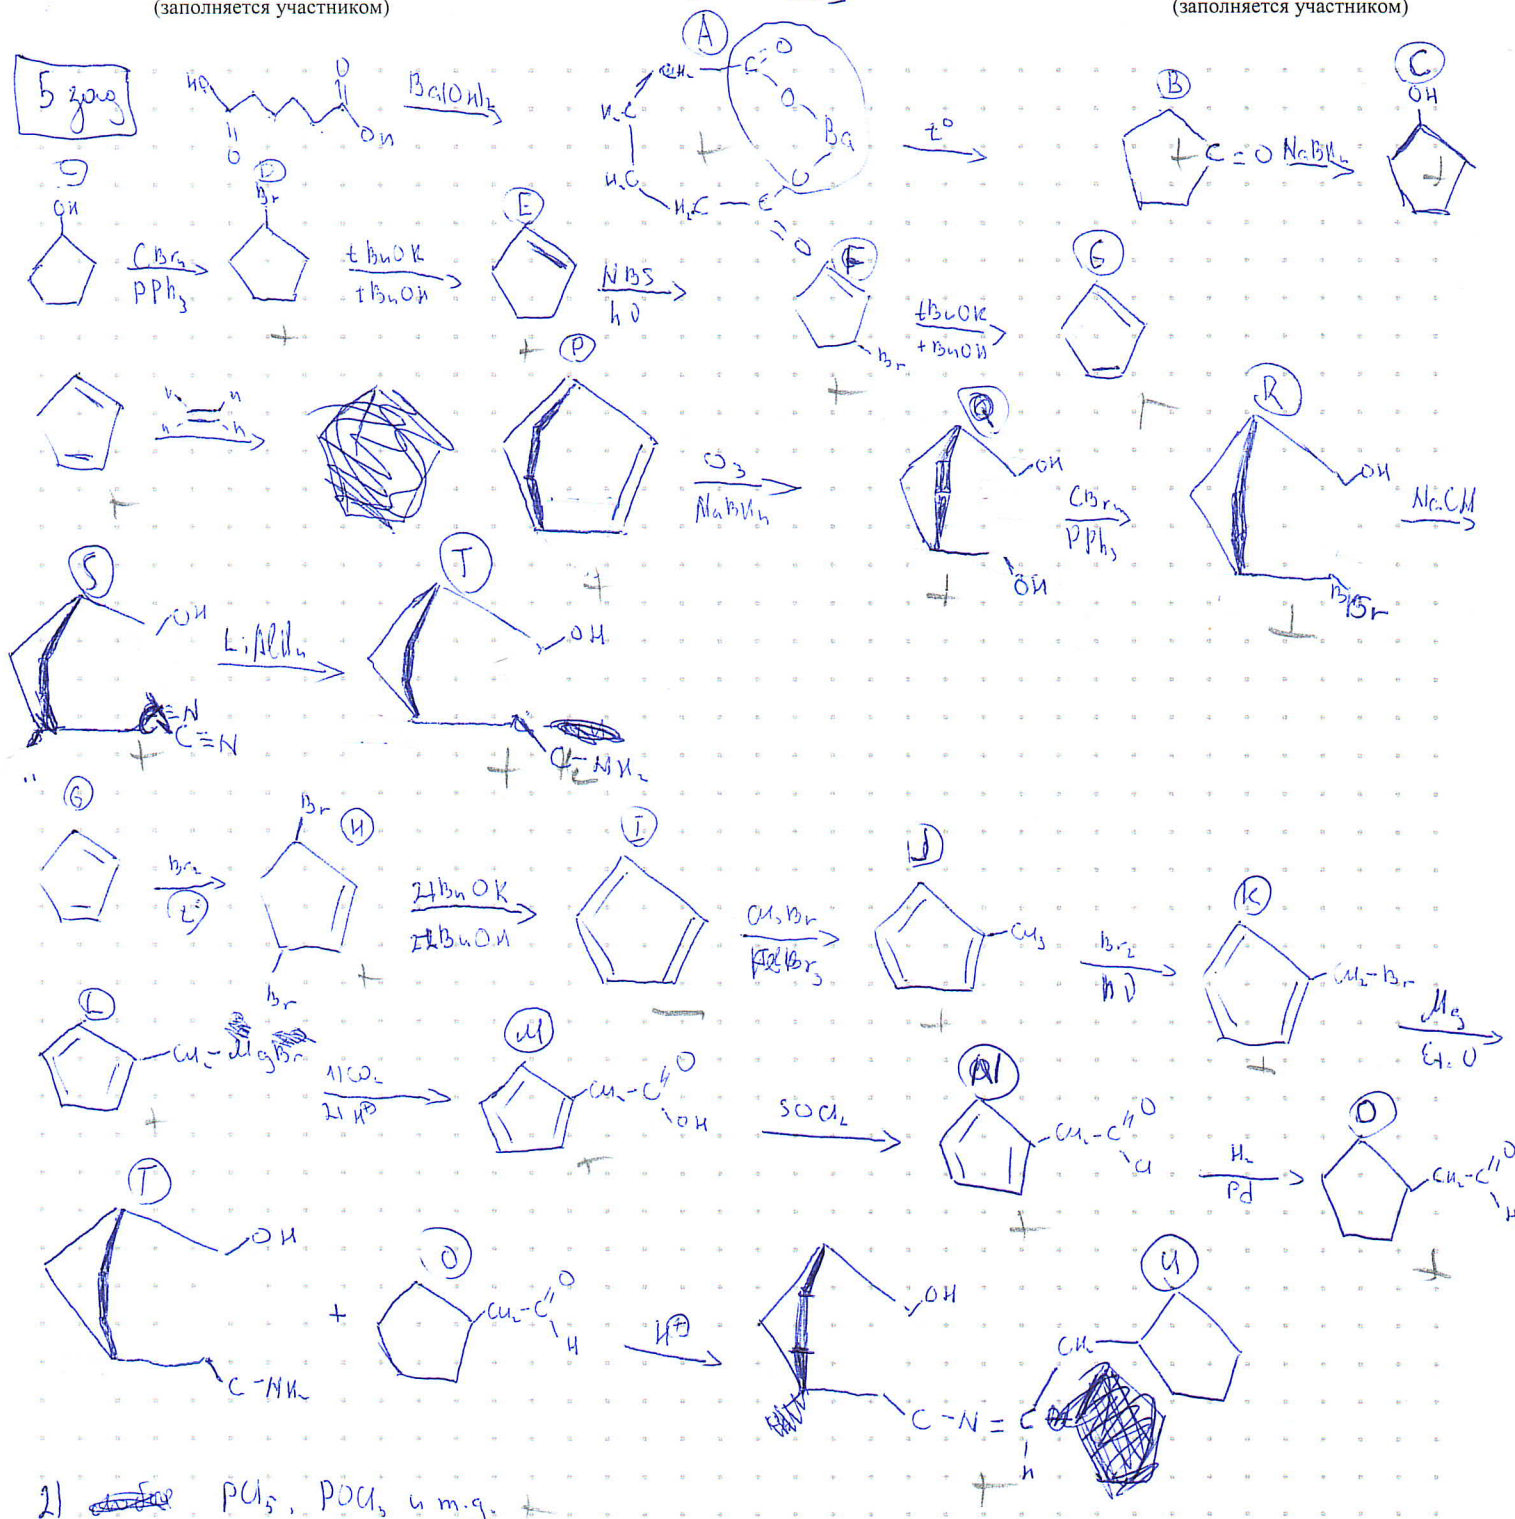 (заполняется участником) (заполняется участником)
5 зад
HO O O OH Ba(OH)₂ A CH₂ C=O O Ba O C=O H₂C H₂C H₂C t° B C=O NaBH₄ C OH
OH CBr₄ PPh₃ D Br tBuOK tBuOH E NBS hν F Br tBuOK tBuOH G
H H H H P O₃ NaBH₄ Q OH OH CBr₄ PPh₃ R OH Br NaCN
S OH C≡N LiAlH₄ T OH C-NH₂
G Br₂ t° H Br Br 2tBuOK 2tBuOH I CH₃Br FeBr₃ J CH₃ Br₂ hν K CH₂-Br Mg Et₂O
L CH₂-MgBr 1) CO₂ 2) H⊕ M CH₂-C=O OH SOCl₂ N CH₂-C=O Cl H₂ Pd O CH₂-C=O H
T OH C-NH₂ + O CH₂-C=O H H⊕ OH C-N=C H CH₂ U
2) PCl₅, POCl₃ и т.д. +